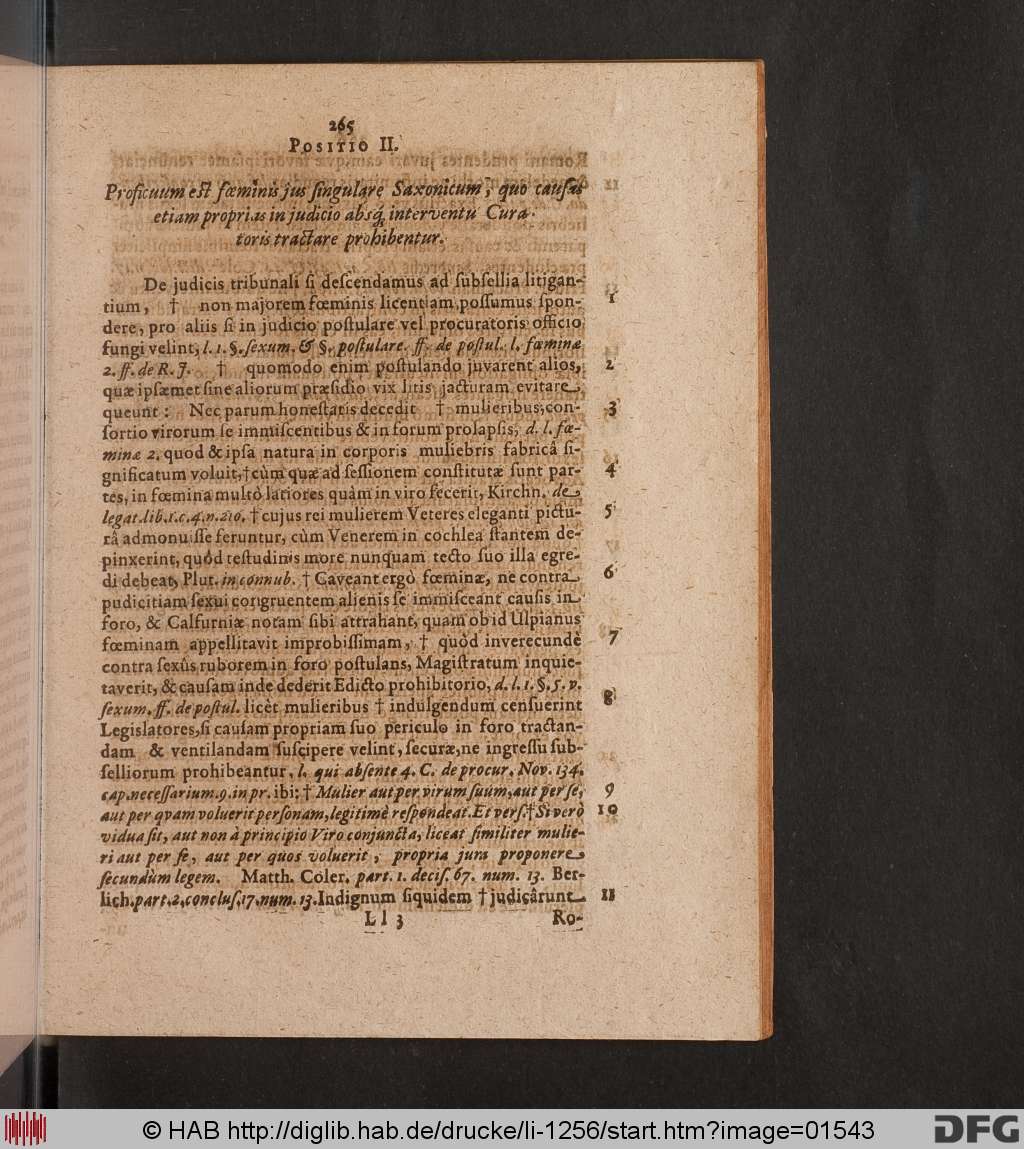 265
POSITIO II.
Proficuum est fœminis jus singulare Saxonicum, quo causas
etiam proprias in judicio absq́; interventu Cura-
toris tractare prohibentur.
De judicis tribunali si descendamus ad subsellia litigan-
tium, † non majorem fœminis licentiam possumus spon- 1
dere, pro aliis si in judicio postulare vel procuratoris officio
fungi velint, l. 1. §. sexum. & §. postulare. ff. de postul. l. fœminæ
2. ff. de R. J. † quomodo enim postulando juvarent alios, 2
quæ ipsæmet sine aliorum præsidio vix litis jacturam evitare
queunt: Nec parum honestatis decedit † mulieribus, con- 3
sortio virorum se immiscentibus & in forum prolapsis, d. l. fœ-
minæ 2. quod & ipsa natura in corporis muliebris fabricâ si-
gnificatum voluit, † cùm quæ ad sessionem constitutæ sunt par- 4
tes, in fœmina multò latiores quàm in viro fecerit, Kirchn. de
legat. lib. 1. c. 4. n. 210. † cujus rei mulierem Veteres eleganti pictu- 5
râ admonuisse feruntur, cùm Venerem in cochlea stantem de-
pinxerint, quòd testudinis more nunquam tecto suo illa egre-
di debeat, Plut. in connub. † Caveant ergò fœminæ, ne contra 6
pudicitiam sexui congruentem alienis se immisceant causis in
foro, & Calfurniæ notam sibi attrahant, quam ob id Ulpianus
fœminam appellitavit improbissimam, † quòd inverecundè 7
contra sexûs ruborem in foro postulans, Magistratum inquie-
taverit, & causam inde dederit Edicto prohibitorio, d. l. 1. §. 5. v.
sexum. ff. de postul. licèt mulieribus † indulgendum censuerint 8
Legislatores, si causam propriam suo periculo in foro tractan-
dam & ventilandam suscipere velint, securæ, ne ingressu sub-
selliorum prohibeantur, l. qui absente 4. C. de procur. Nov. 134.
cap. necessarium. 9. in pr. ibi: † Mulier aut per virum suum, aut per se, 9
aut per qvam voluerit personam, legitimè respondeat. Et vers. † Si verò 10
vidua sit, aut non à principio Viro conjuncta, liceat similiter mulie-
ri aut per se, aut per quos voluerit, propria jura proponere
secundùm legem. Matth. Coler. part. 1. decis. 67. num. 13. Ber-
lich. part. 2. conclus. 17. num. 13. Indignum siquidem † judicârunt 11
Ll 3 Ro-
© HAB http://diglib.hab.de/drucke/li-1256/start.htm?image=01543
DFG